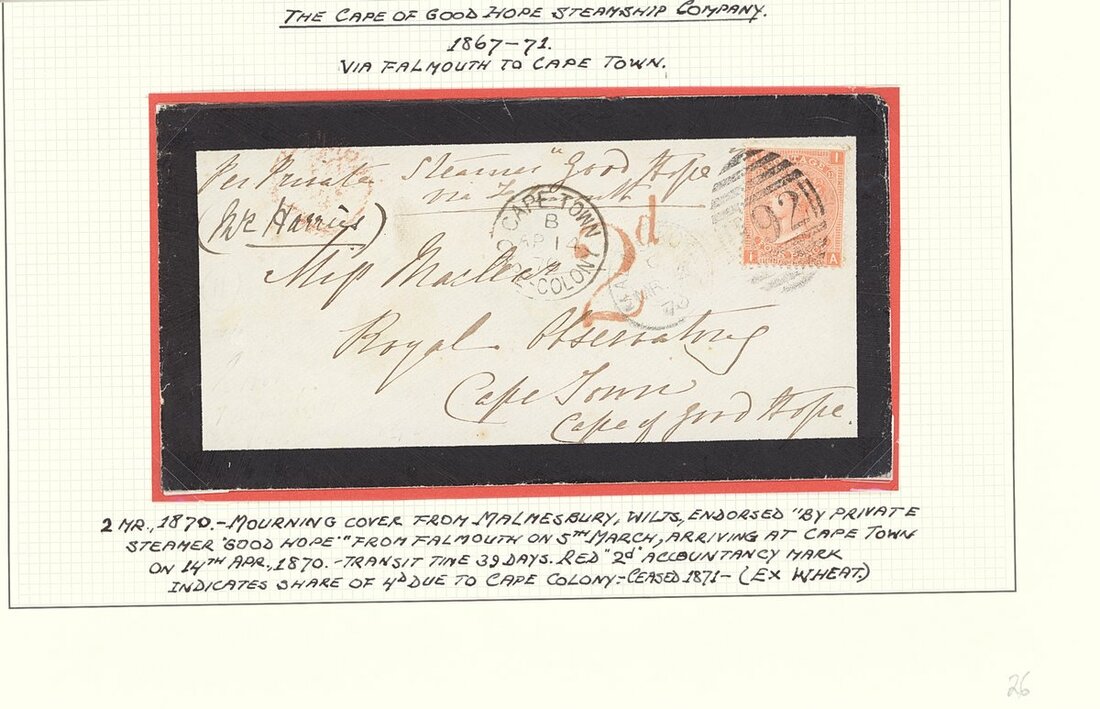 THE CAPE OF GOOD HOPE STEAMSHIP COMPANY.
1867-71.
VIA FALMOUTH TO CAPE TOWN.
Per Private Steamer "Good Hope
via
(Mr Harris)
CAPE TOWN
B
AP 14
COLONY
2d
MR
70
92
I
POSTAGE
I A
Miss
Royal Observatory
Cape Town
Cape of Good Hope.
2 MR., 1870.-MOURNING COVER FROM MALMESBURY, WILTS, ENDORSED "BY PRIVATE
STEAMER 'GOOD HOPE'" FROM FALMOUTH ON 5TH MARCH, ARRIVING AT CAPE TOWN
ON 14TH APR., 1870.-TRANSIT TIME 39 DAYS. RED "2d" ACCOUNTANCY MARK
INDICATES SHARE OF 4D DUE TO CAPE COLONY-CEASED 1871-(EX WHEAT.)
26